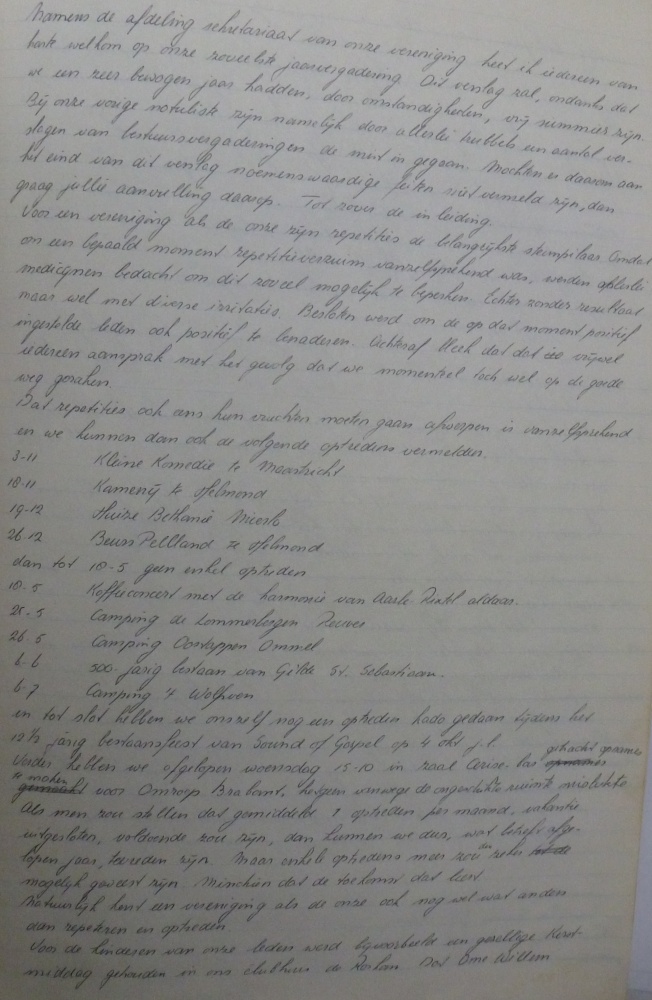 Namens de afdeling sekretariaat van onze vereniging heet ik iedereen van
harte welkom op onze zoveelste jaarvergadering. Dit verslag zal, ondanks dat
we een zeer bewogen jaar hadden, door omstandigheden, vrij summier zijn.
Bij onze vorige notuliste zijn namelijk door allerlei hubbels een aantal ver-
slagen van bestuursvergaderingen de mist in gegaan. Mochten er daarom aan
het eind van dit verslag noemenswaardige feiten niet vermeld zijn, dan
graag jullie aanvulling daarop. Tot zover de inleiding.
Voor een vereniging als de onze zijn repetities de belangrijkste steunpilaar. Omdat
op een bepaald moment repetitieverzuim vanzelfsprekend was, werden allerlei
medicijnen bedacht om dit zoveel mogelijk te beperken. Echter zonder resultaat
maar wel met diverse irritaties. Besloten werd om de op dat moment positief
ingestelde leden ook positief te benaderen. Achteraf bleek dat dat vrijwel
iedereen aansprak met het gevolg dat we momenteel toch wel op de goede
weg geraken.
Dat repetities ook eens hun vruchten moeten gaan afwerpen is vanzelfsprekend
en we kunnen dan ook de volgende optredens vermelden.
3-11 Kleine Komedie te Maastricht
18-11 Kamenij te Helmond
19-12 Huize Bethanië Mierlo
26-12 Beurs Pellland te Helmond
dan tot 10-5 geen enkel optreden
10-5 Koffieconcert met de harmonie van Aarle-Rixtel aldaar.
25-5 Camping de Lommerbergen Reuver
26-5 Camping Oostappen Ommel
6-6 500-jarig bestaan van Gilde St. Sebastiaan.
6-7 Camping 't Wolfsven
en tot slot hebben we onszelf nog een optreden kado gedaan tijdens het
12½ jarig bestaansfeest van Sound of Gospel op 4 okt j.l.
Verder hebben we afgelopen woensdag 15-10 in zaal een
te maken voor Omroep Brabant, hetgeen vanwege de ongeschikte ruimte mislukte
Als men zou stellen dat gemiddeld 1 optreden per maand, vakantie
uitgesloten, voldoende zou zijn, dan kunnen we dus, wat betreft afge-
lopen jaar, tevreden zijn. Maar enkele optredens meer zou zeker
mogelijk geweest zijn. Misschien dat de toekomst dat leert.
Natuurlijk kent een vereniging als de onze ook nog wel wat anders
dan repeteren en optreden
Voor de kinderen van onze leden werd bijvoorbeeld een gezellige Kerst-
middag gehouden in ons clubhuis de Dat Ome Willem